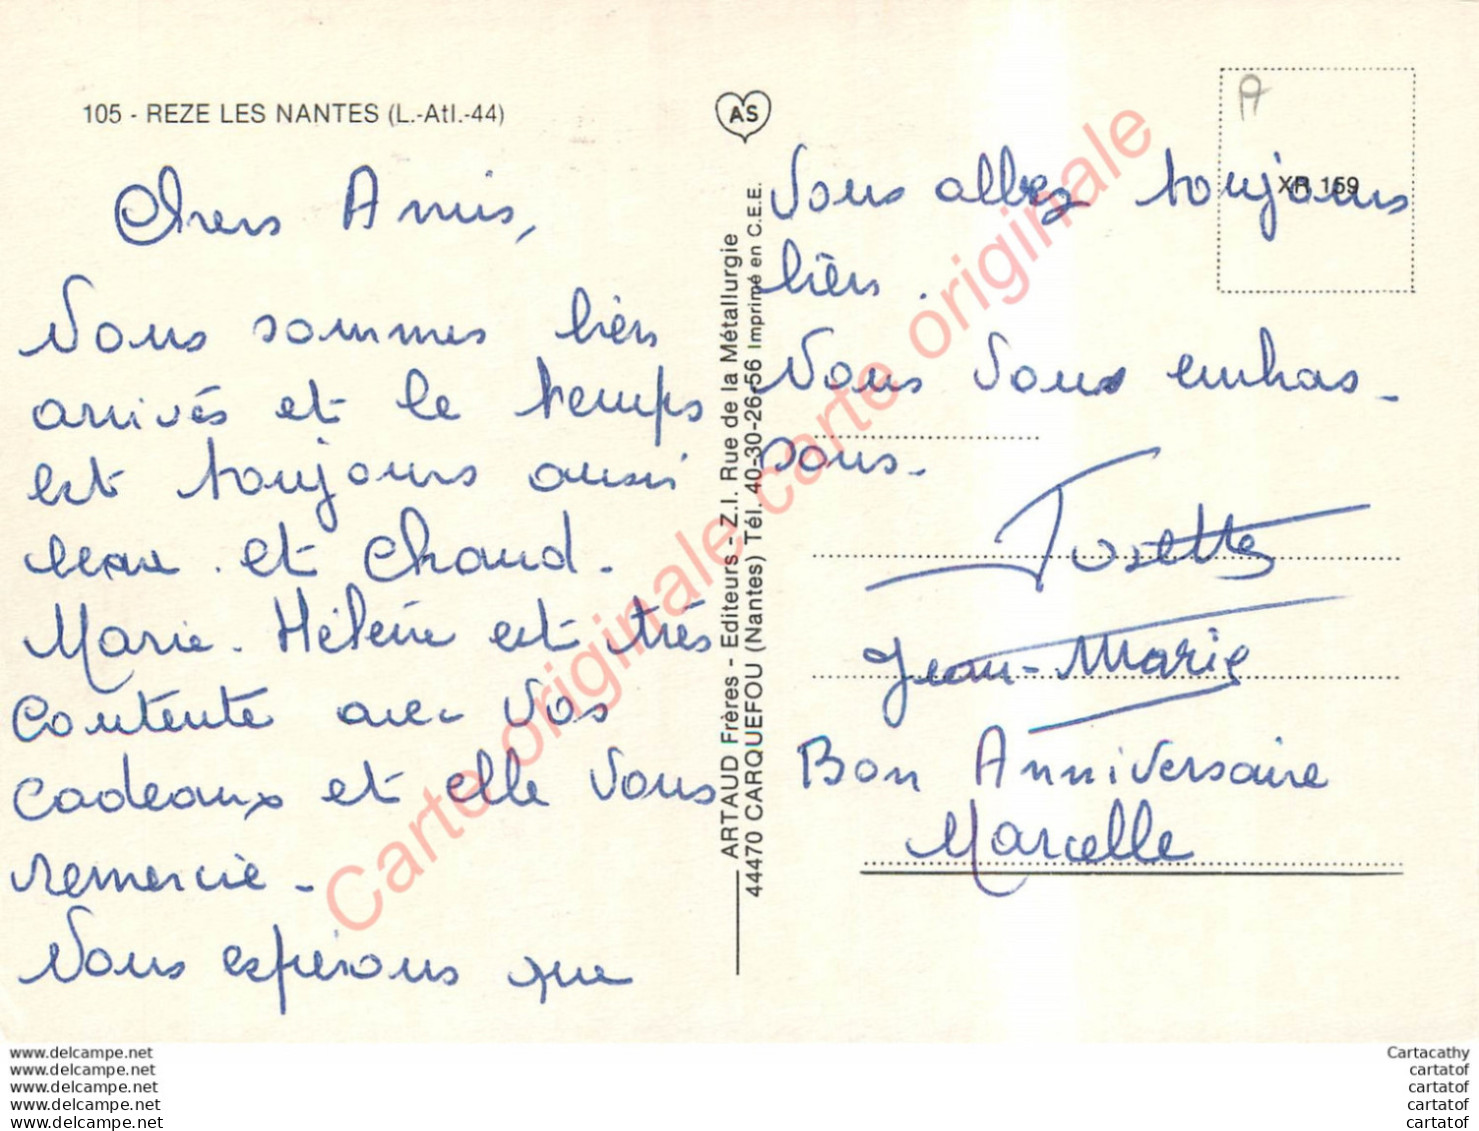 105 - REZE LES NANTES (L.-Atl.-44)
Chers Amis,
Nous sommes bien
arrivés et le temps
est toujours aussi
beau et chaud.
Marie-Hélène est très
contente avec vos
cadeaux et elle vous
remercie.
Nous espérons que
AS
ARTAUD Frères - Editeurs - Z.I. Rue de la Métallurgie
44470 CARQUEFOU (Nantes) Tél. 40-30-26-56 Imprimé en C.E.E.
A
XR 159
Vous allez toujours
bien.
Nous vous embras-
sons.
Josette
Jean-Marie
Bon Anniversaire
Marcelle
Carte originale carte originale
www.delcampe.net
www.delcampe.net
www.delcampe.net
www.delcampe.net
www.delcampe.net
Cartacathy
cartatof
cartatof
cartatof
cartatof